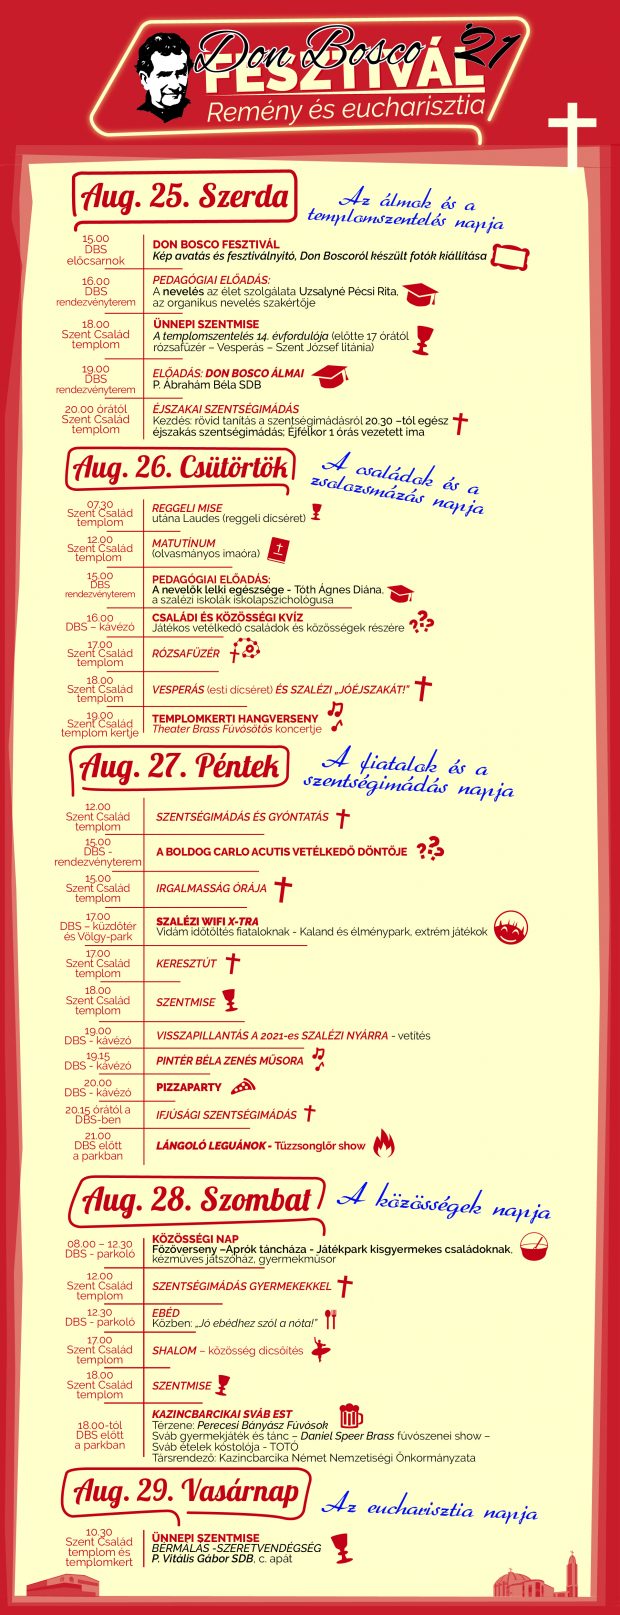 Don Bosco '21
FESZTIVÁL
Remény és eucharisztia
Aug. 25. Szerda
Az álmok és a
templomszentelés napja
15.00
DBS
előcsarnok
DON BOSCO FESZTIVÁL
Kép avatás és fesztiválnyitó, Don Boscoról készült fotók kiállítása
16.00
DBS
rendezvényterem
PEDAGÓGIAI ELŐADÁS:
A nevelés az élet szolgálata Uzsalyné Pécsi Rita,
az organikus nevelés szakértője
18.00
Szent Család
templom
ÜNNEPI SZENTMISE
A templomszentelés 14. évfordulója (előtte 17 órától
rózsafüzér – Vesperás – Szent József litánia)
19.00
DBS
rendezvényterem
ELŐADÁS: DON BOSCO ÁLMAI
P. Ábrahám Béla SDB
20.00 órától
Szent Család
templom
ÉJSZAKAI SZENTSÉGIMÁDÁS
Kezdés: rövid tanítás a szentségimádásról 20.30 –tól egész
éjszakás szentségimádás; Éjfélkor 1 órás vezetett ima
Aug. 26. Csütörtök
A családok és a
zsolozsmázás napja
07.30
Szent Család
templom
REGGELI MISE
utána Laudes (reggeli dícséret)
12.00
Szent Család
templom
MATUTÍNUM
(olvasmányos imaóra)
15.00
DBS
rendezvényterem
PEDAGÓGIAI ELŐADÁS:
A nevelők lelki egészsége - Tóth Ágnes Diána,
a szalézi iskolák iskolapszichológusa
16.00
DBS – kávézó
CSALÁDI ÉS KÖZÖSSÉGI KVÍZ
Játékos vetélkedő családok és közösségek részére
17.00
Szent Család
templom
RÓZSAFÜZÉR
18.00
Szent Család
templom
VESPERÁS (esti dícséret) ÉS SZALÉZI „JÓÉJSZAKÁT!”
19.00
Szent Család
templom kertje
TEMPLOMKERTI HANGVERSENY
Theater Brass Fúvósötös koncertje
Aug. 27. Péntek
A fiatalok és a
szentségimádás napja
12.00
Szent Család
templom
SZENTSÉGIMÁDÁS ÉS GYÓNTATÁS
15.00
DBS -
rendezvényterem
A BOLDOG CARLO ACUTIS VETÉLKEDŐ DÖNTŐJE
15.00
Szent Család
templom
IRGALMASSÁG ÓRÁJA
17.00
DBS – küzdőtér
és Völgy-park
SZALÉZI WIFI X-TRA
Vidám időtöltés fiataloknak - Kaland és élménypark, extrém játékok
17.00
Szent Család
templom
KERESZTÚT
18.00
Szent Család
templom
SZENTMISE
19.00
DBS - kávézó
VISSZAPILLANTÁS A 2021-es SZALÉZI NYÁRRA - vetítés
19.15
DBS - kávézó
PINTÉR BÉLA ZENÉS MŰSORA
20.00
DBS - kávézó
PIZZAPARTY
20.15 órától a
DBS-ben
IFJÚSÁGI SZENTSÉGIMÁDÁS
21.00
DBS előtt
a parkban
LÁNGOLÓ LEGUÁNOK - Tűzzsonglőr show
Aug. 28. Szombat
A közösségek napja
08.00 – 12.30
DBS - parkoló
KÖZÖSSÉGI NAP
Főzőverseny –Aprók táncháza - Játékpark kisgyermekes családoknak,
kézműves játszóház, gyermekműsor
12.00
Szent Család
templom
SZENTSÉGIMÁDÁS GYERMEKEKKEL
12.30
DBS - parkoló
EBÉD
Közben: „Jó ebédhez szól a nóta!”
17.00
Szent Család
templom
SHALOM – közösség dicsőítés
18.00
Szent Család
templom
SZENTMISE
18.00-tól
DBS előtt
a parkban
KAZINCBARCIKAI SVÁB EST
Térzene: Perecesi Bányász Fúvósok
Sváb gyermekjáték és tánc – Daniel Speer Brass fúvószenei show –
Sváb ételek kóstolója - TOTÓ
Társrendező: Kazincbarcika Német Nemzetiségi Önkormányzata
Aug. 29. Vasárnap
Az eucharisztia napja
10.30
Szent Család
templom és
templomkert
ÜNNEPI SZENTMISE
BÉRMÁLÁS -SZERETVENDÉGSÉG
P. Vitális Gábor SDB, c. apát